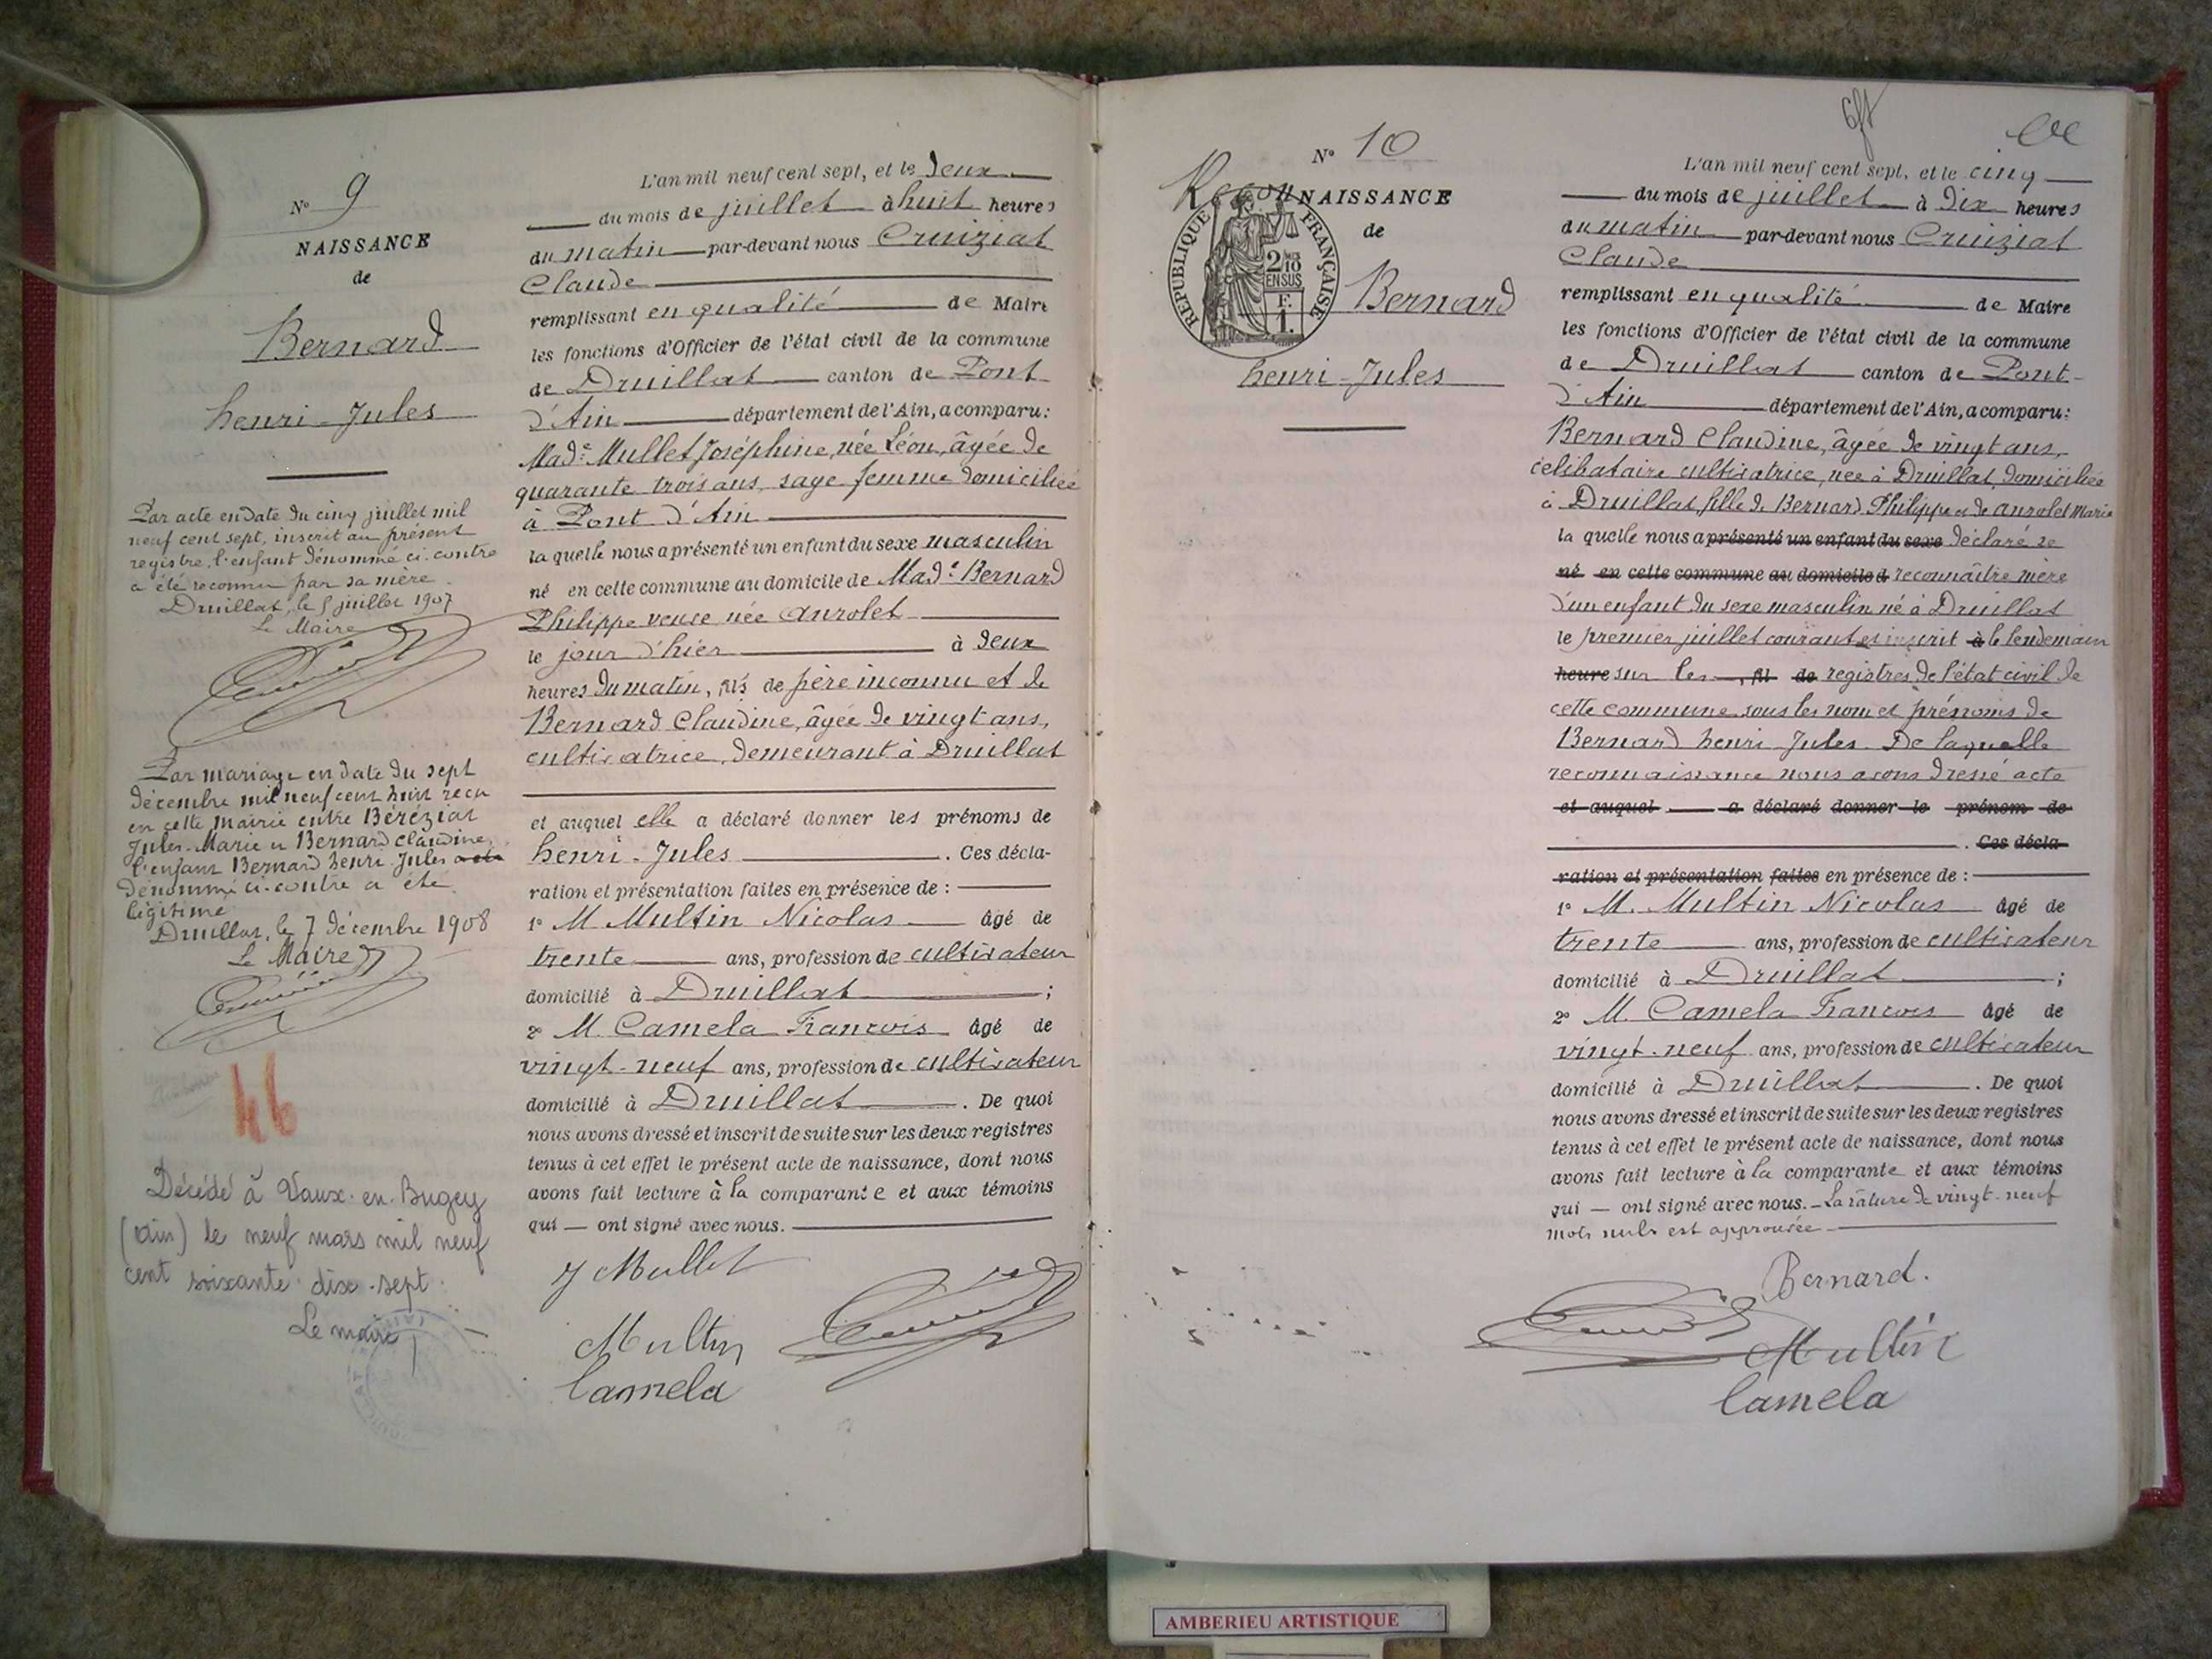 N° 9
NAISSANCE
de
Bernard
henri-Jules
Par acte en date du cinq juillet mil
neuf cent sept, inscrit au présent
registre, l'enfant dénommé ci-contre
a été reconnu par sa mère.
Druillat, le 5 juillet 1907
Le Maire
Par mariage en date du sept
décembre mil neuf cent huit reçu
en cette mairie entre Béréziat
Jules-Marie et Bernard Claudine,
l'enfant Bernard henri-Jules
dénommé ci-contre a été
légitimé
Druillat, le 7 décembre 1908
Le Maire
46
Décédé à Vaux-en-Bugey
(Ain) le neuf mars mil neuf
cent soixante-dix-sept.
Le maire
L'an mil neuf cent sept, et le deux
du mois de juillet à huit heures
du matin par-devant nous Cruiziat
Claude
remplissant en qualité de Maire
les fonctions d'Officier de l'état civil de la commune
de Druillat canton de Pont
d'Ain département de l'Ain, a comparu:
Mad.e Mullet Joséphine, née Léon, âgée de
quarante trois ans, sage femme domiciliée
à Pont d'Ain
la quelle nous a présenté un enfant du sexe masculin
né en cette commune au domicile de Mad.e Bernard
Philippe veuve née Anrolet
le jour d'hier à deux
heures du matin, fils de père inconnu et de
Bernard Claudine, âgée de vingt ans,
cultivatrice, demeurant à Druillat
et auquel elle a déclaré donner les prénoms de
henri-Jules. Ces décla-
ration et présentation faites en présence de :
1° M Multin Nicolas âgé de
trente ans, profession de cultivateur
domicilié à Druillat ;
2° M. Camela Francois âgé de
vingt-neuf ans, profession de cultivateur
domicilié à Druillat. De quoi
nous avons dressé et inscrit de suite sur les deux registres
tenus à cet effet le présent acte de naissance, dont nous
avons fait lecture à la comparante et aux témoins
qui — ont signé avec nous.
J Mullet
Multin
Camela
N° 10
Recon NAISSANCE
de
RÉPUBLIQUE FRANÇAISE
2/10 EN SUS
F. 1.
Bernard
henri-Jules
L'an mil neuf cent sept, et le cinq
du mois de juillet à dix heures
du matin par-devant nous Cruiziat
Claude
remplissant en qualité de Maire
les fonctions d'Officier de l'état civil de la commune
de Druillat canton de Pont-
d'Ain département de l'Ain, a comparu:
Bernard Claudine, âgée de vingt ans,
célibataire cultivatrice, née à Druillat, domiciliée
à Druillat fille de Bernard Philippe et de Anrolet Marie
la quelle nous a présenté un enfant du sexe déclaré se
né en cette commune au domicile d reconnaître mère
d'un enfant du sexe masculin né à Druillat
le premier juillet courant et inscrit à le lendemain
heure sur les , fil de registres de l'état civil de
cette commune sous les nom et prénoms de
Bernard henri-Jules. De laquelle
reconnaissance nous avons dressé acte
et auquel a déclaré donner le prénom de
. Ces décla-
ration et présentation faites en présence de :
1° M. Multin Nicolas âgé de
trente ans, profession de cultivateur
domicilié à Druillat ;
2° M. Camela Francois âgé de
vingt-neuf ans, profession de cultivateur
domicilié à Druillat. De quoi
nous avons dressé et inscrit de suite sur les deux registres
tenus à cet effet le présent acte de naissance, dont nous
avons fait lecture à la comparante et aux témoins
qui — ont signé avec nous. - La râture de vingt-neuf
mots nuls est approuvée
Bernard.
Multin
Camela
AMBERIEU ARTISTIQUE